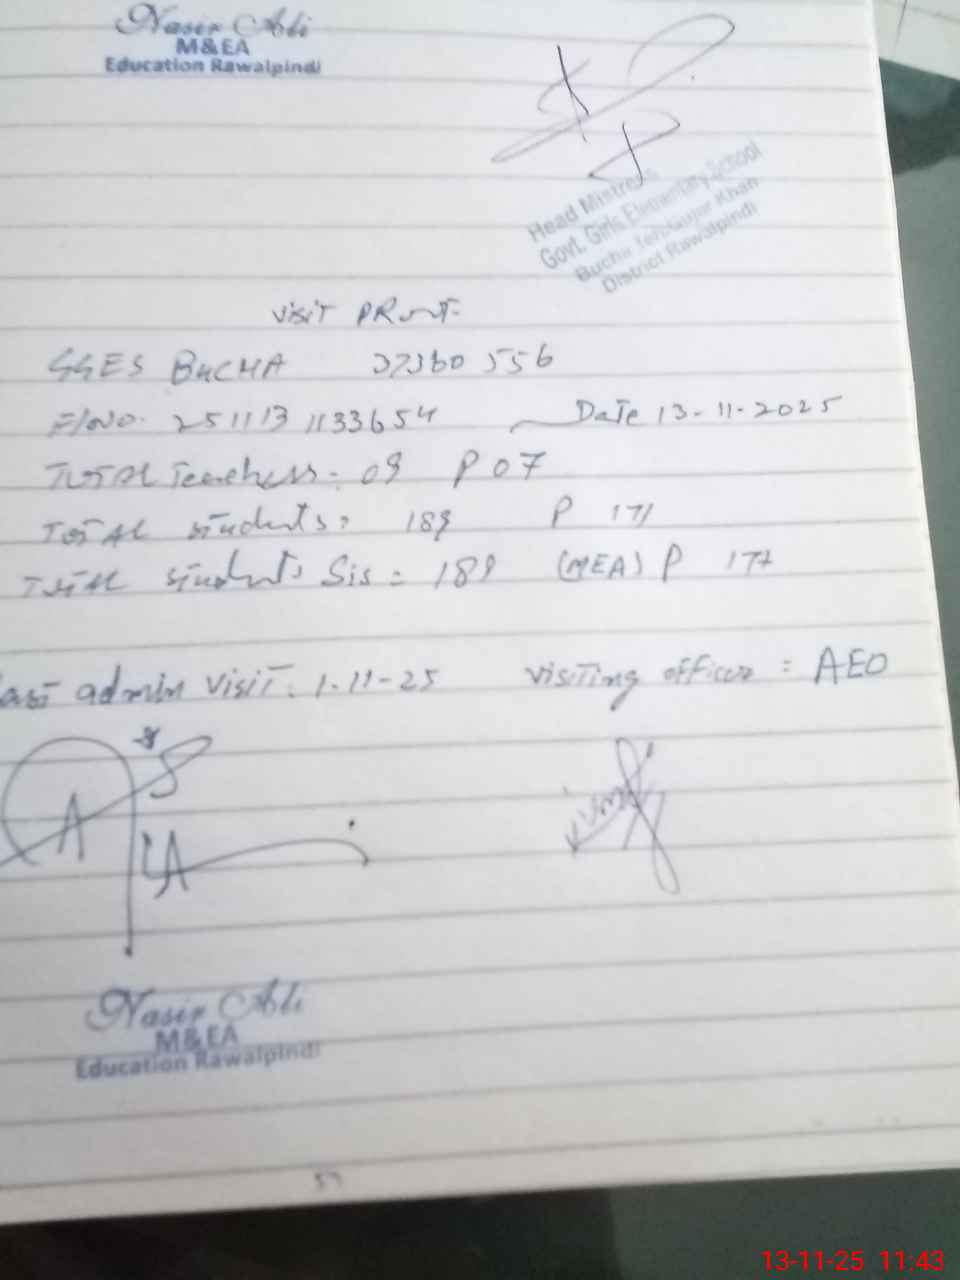 Nasir Ali
M&EA
Education Rawalpindi
Head Mistress
Govt. Girls Elementary School
Bucha Teh: Gujar Khan
District Rawalpindi
Visit
GGES BUCHA 37360556
F/No. 251113 1133654 Date 13-11-2025
Total Teachers - 09 P 07
TOTAL students: 189 P 171
Total students Sis = 189 (MEA) P 177
Last admin visit: 1-11-25 Visiting officer = AEO
Nasir Ali
M&EA
Education Rawalpindi
13-11-25 11:43